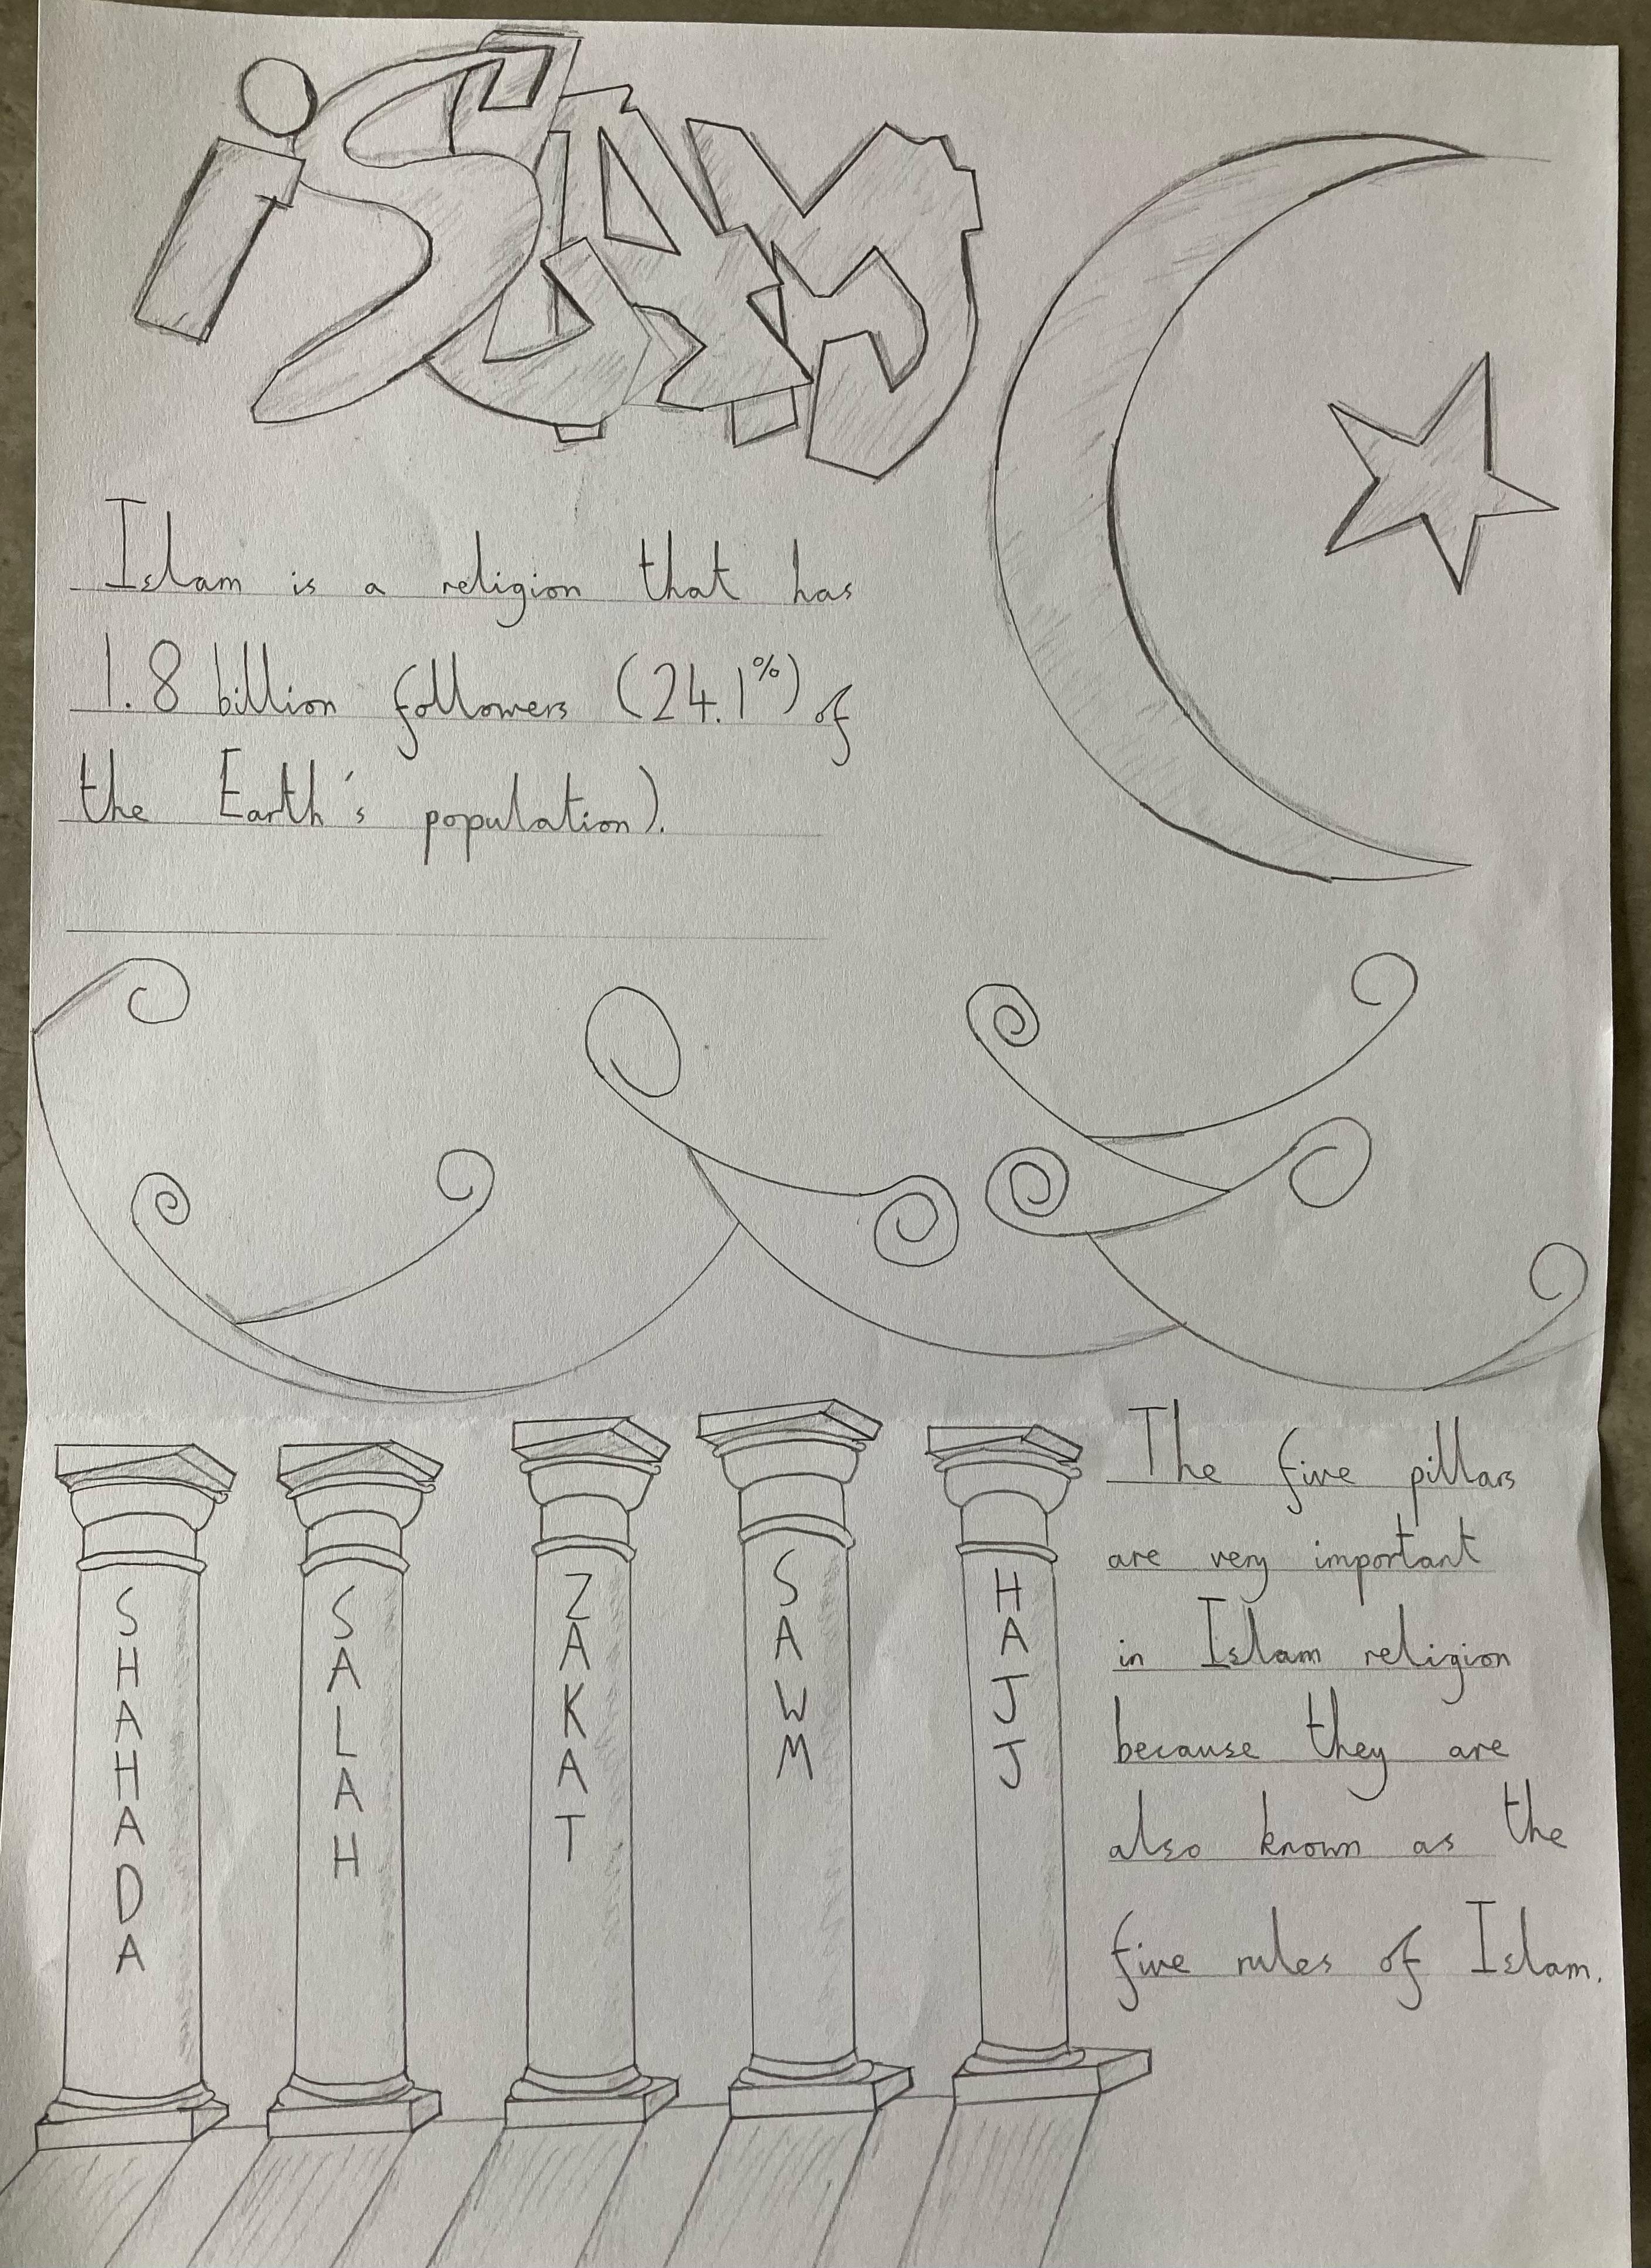 iSLAM
Islam is a religion that has
1.8 billion followers (24.1%) of
the Earth's population).
SHAHADA
SALAH
ZAKAT
SAWM
HAJJ
The five pillars
are very important
in Islam religion
because they are
also known as the
five rules of Islam.